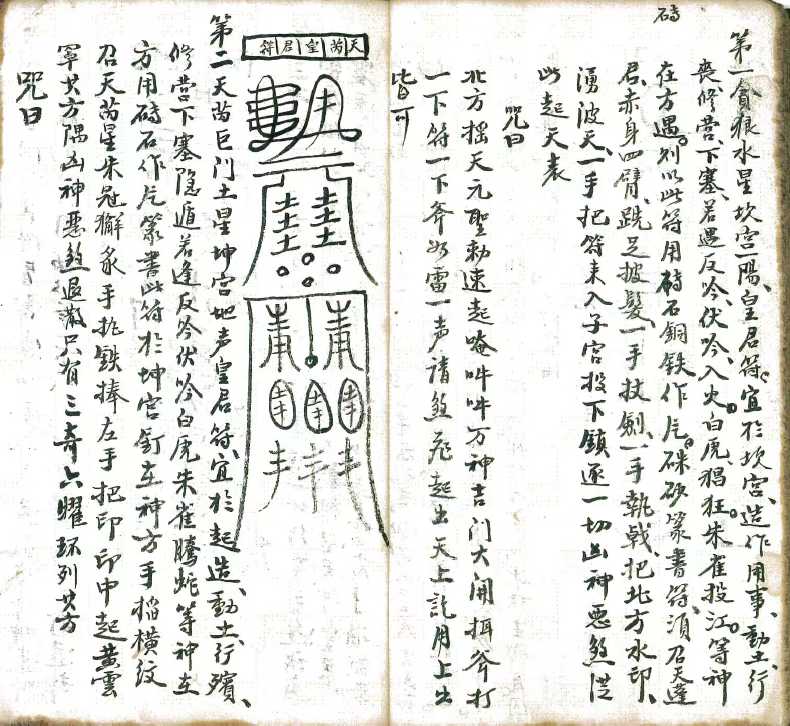 磚
第一貪狼水星坎宮一陽皇君符宜於坎宮造作用事動土行
喪修營下塞若遇反吟伏吟入火白虎猖狂朱雀投江等神
在方遇別以此符用磚石銅鉄作片硃砂篆書符須召天蓬
君赤身四臂跣足披髮一手仗劍一手執戟把北方水印
湧波天一手把符来入子宮投下鎮逐一切凶神惡煞從
此起天表
咒曰
北方摇天元聖勅速起唵吽吽万神吉门大開 斧打
一下符一下斧如雷一声諸煞飛起出天上訖用上出
皆可
天芮皇君符
第二天芮巨门土星坤宮地声皇君符宜於起造動土行殯
修营下塞隐遁若逢反吟伏吟白虎朱雀騰蛇等神在
方用磚石作片篆書此符於坤宮釘在神方手 橫纹
召天芮星朱冠獬豸手执鉄捧左手把印印中起黄雲
罩其方隅凶神惡煞退散只有三奇六曜环列其方
咒曰